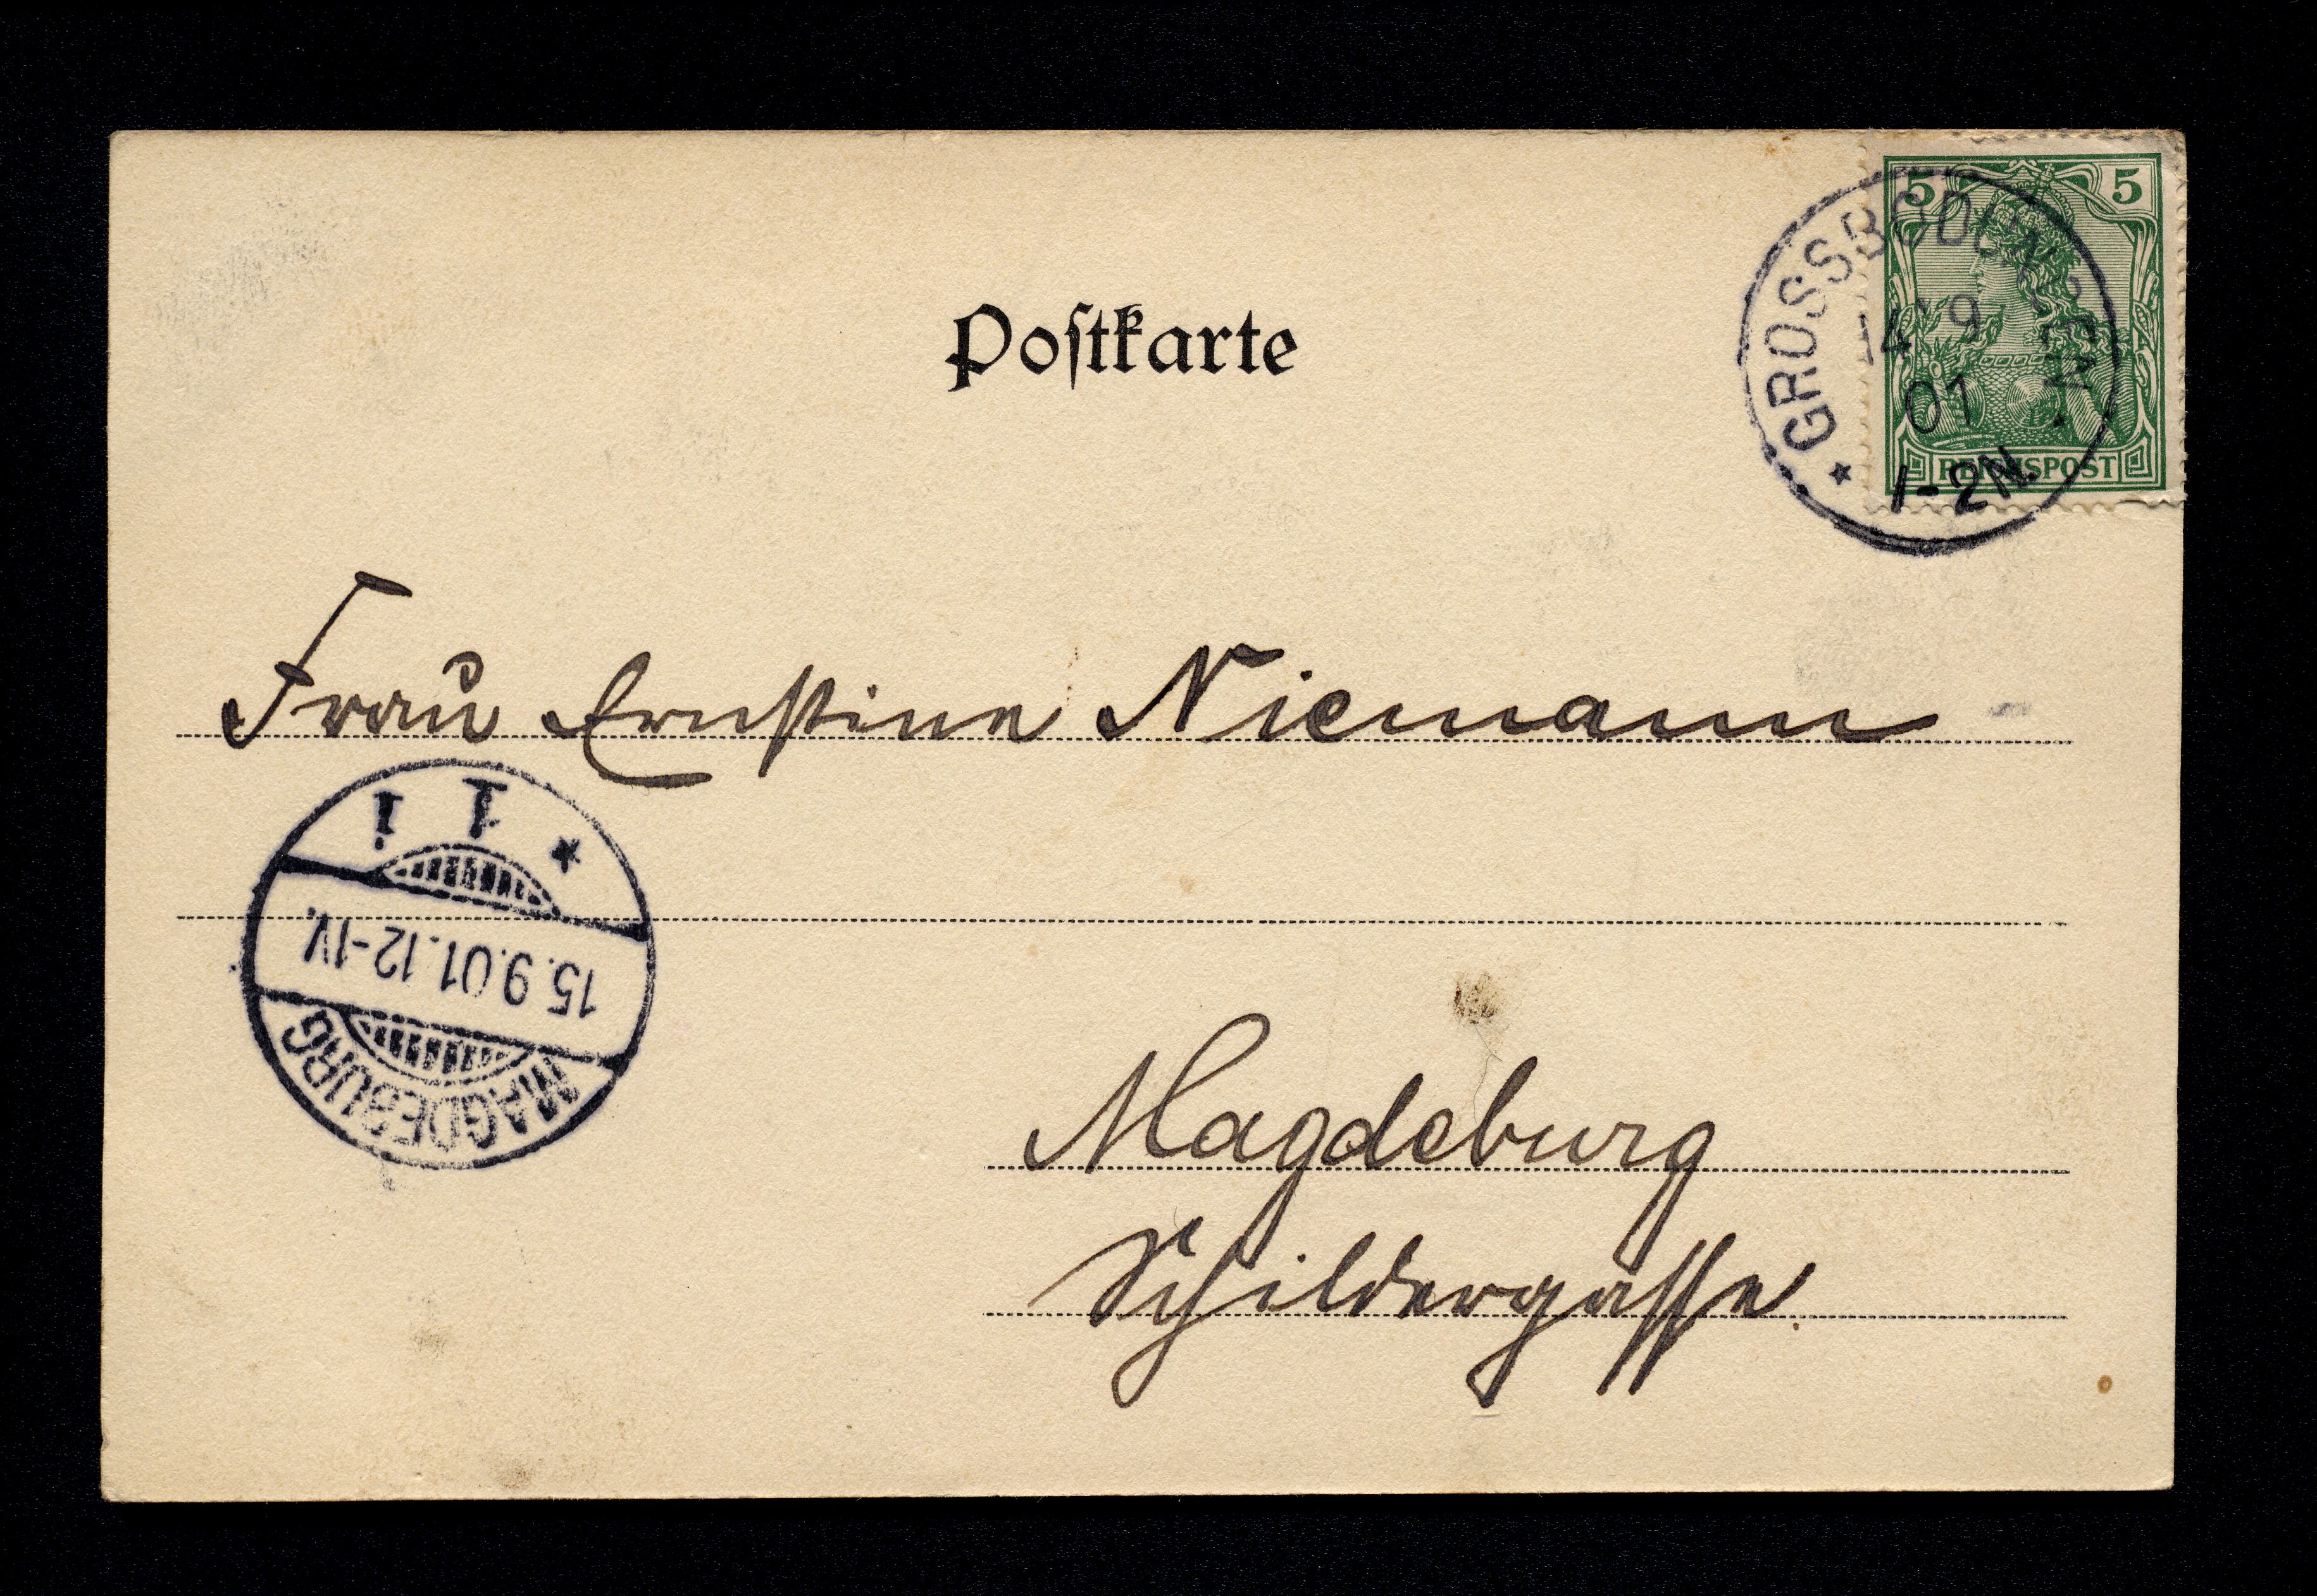 5 5
REICHSPOST
* GROSSBODUNGEN
14 9
01
1-2N.
Postkarte
Frau Ernstine Niemann
* 1 i
15.9.01.12-1V.
MAGDEBURG
Magdeburg
Schildergasse.